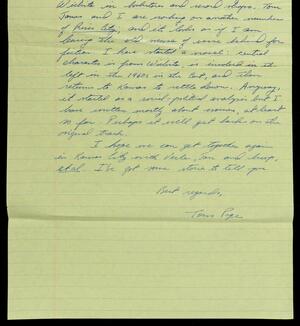 Wichita in bookstores and record shops. Tom
James and I are working on another number
of River City, and it looks as if I am
leaving the old news of verse behind for
fiction. I have started a novel: central
character is from Wichita, is involved in the
left in the 1960s in the East, and then
returns to Kansas to settle down. Anyway,
it started as a social-political analysis but I
have written mostly about women, at least
so far. Perhaps it will get back on the
original track.
I hope we can get together again
in Kansas City with
et al. I've got some stories to tell you.
Best regards,
Tom Page